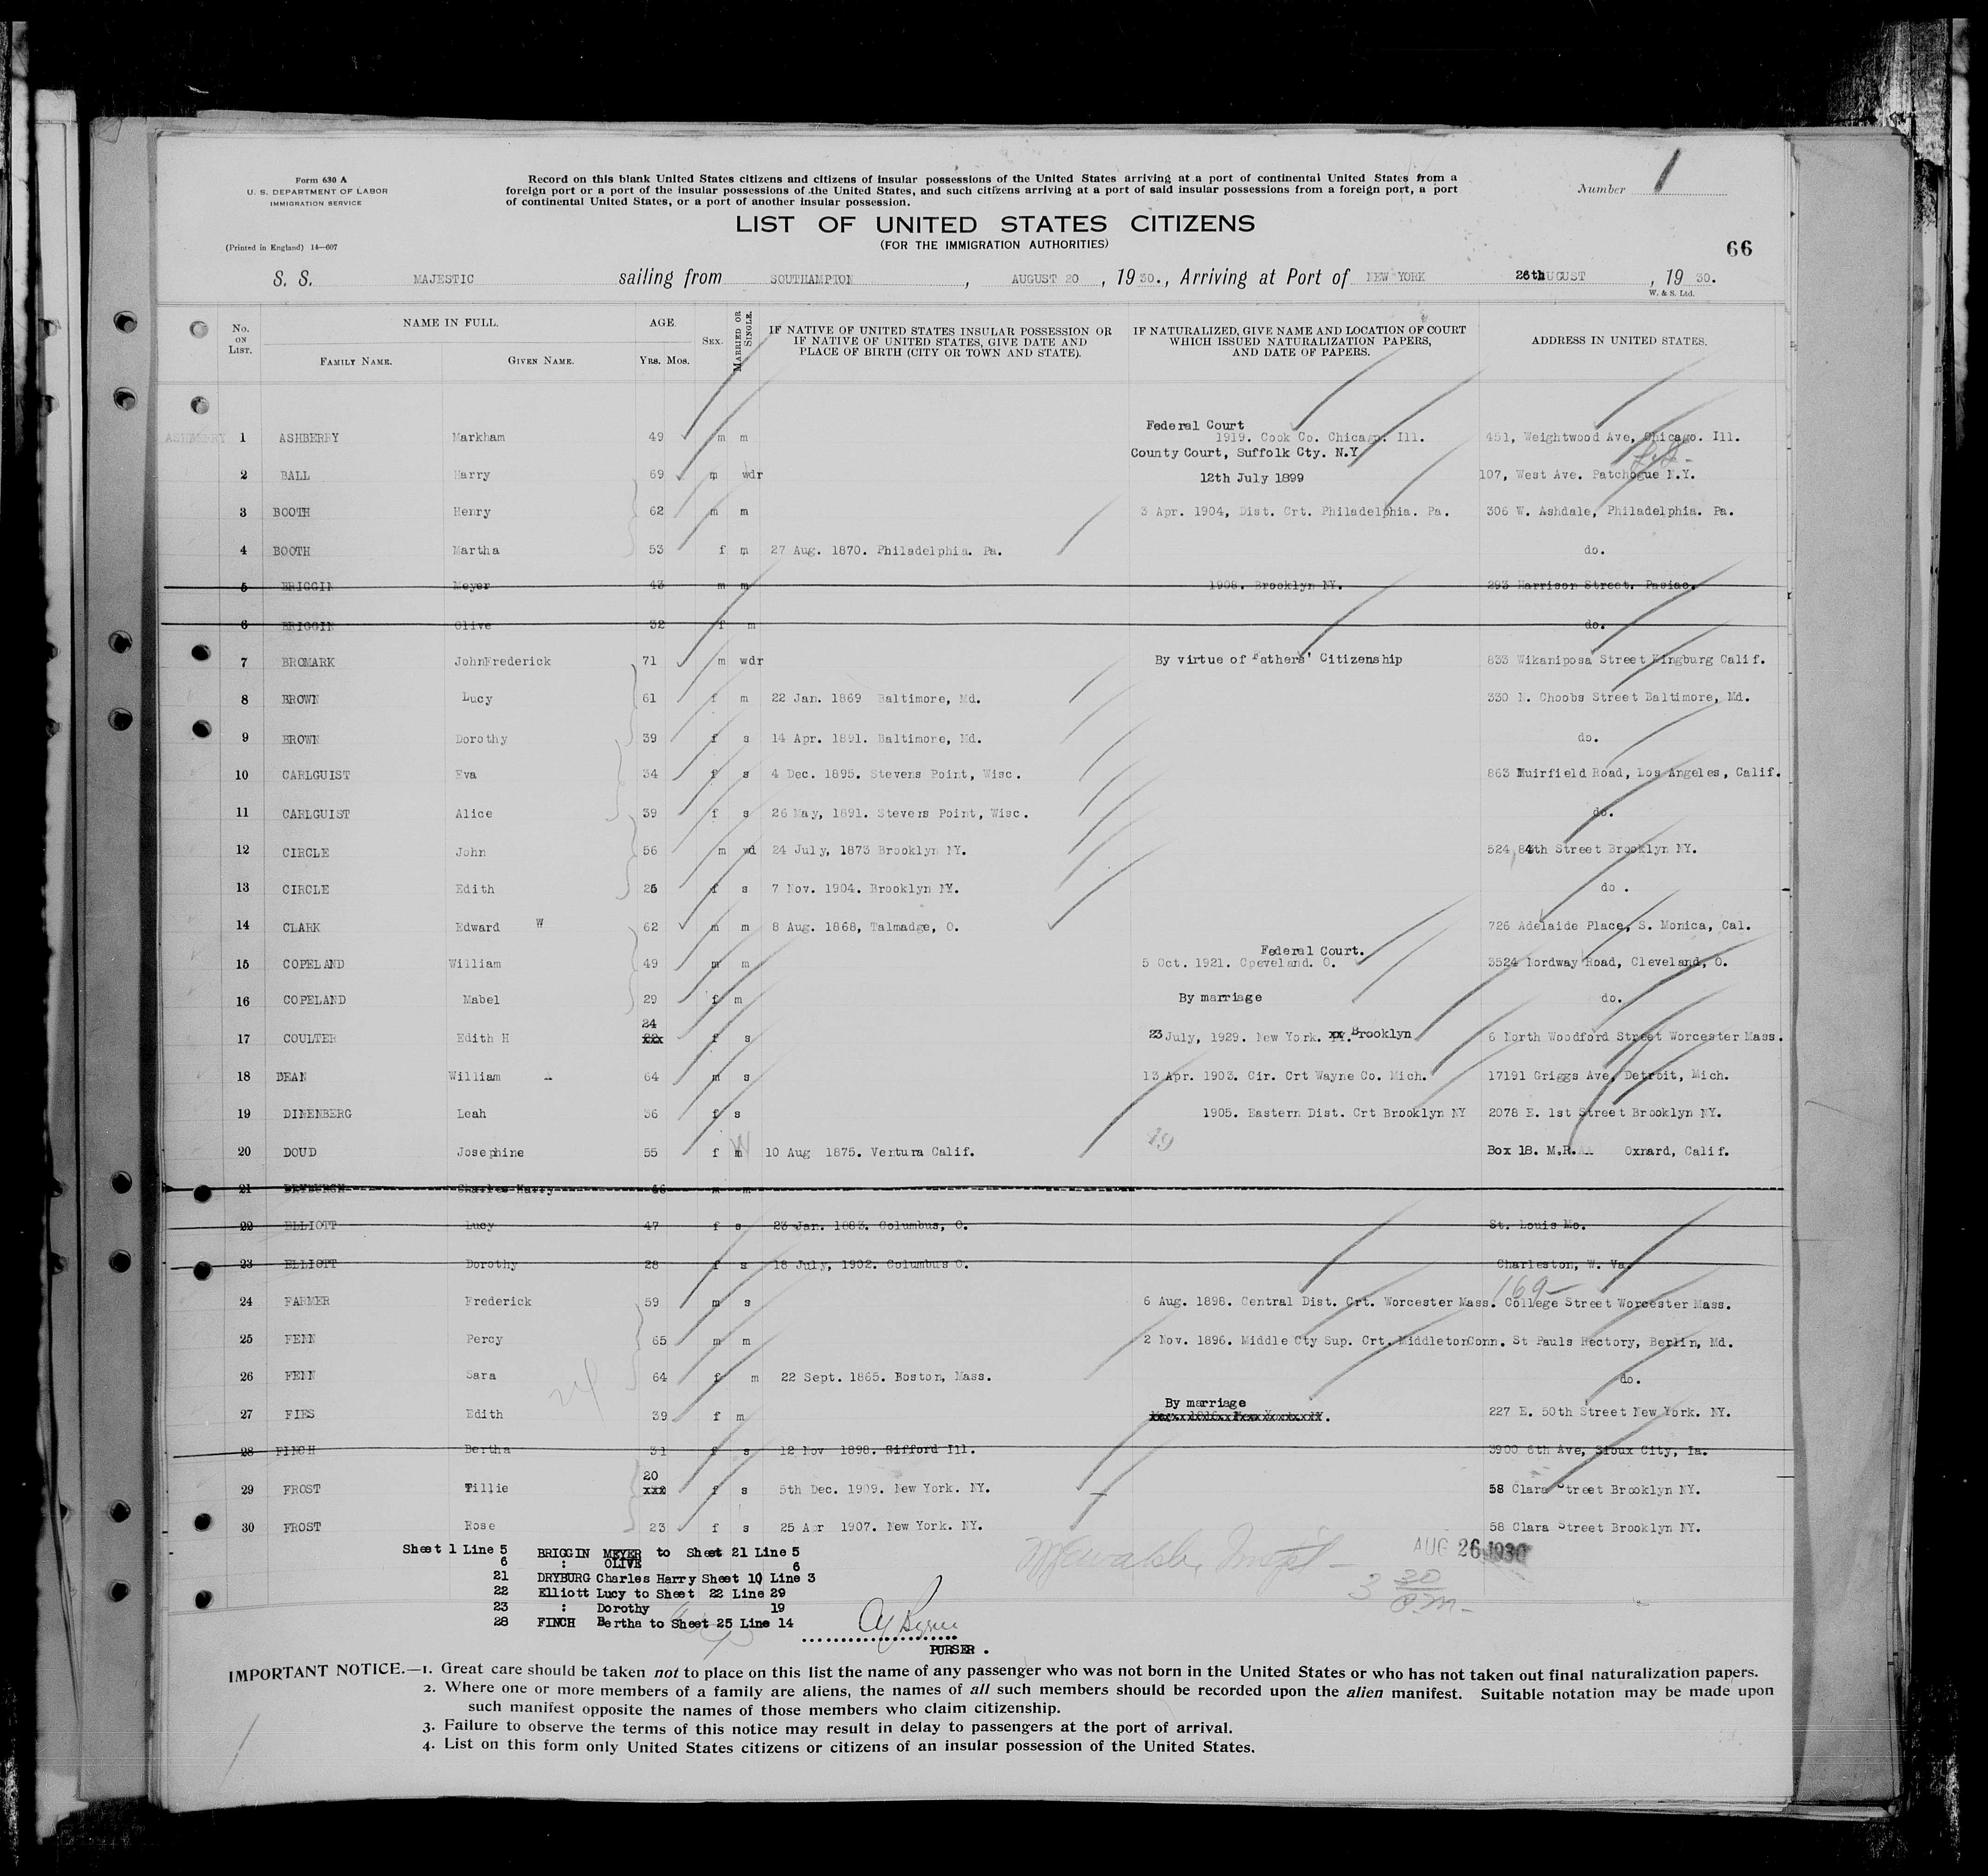 Form 630 A
U. S. DEPARTMENT OF LABOR
IMMIGRATION SERVICE
(Printed in England) 14—607
Record on this blank United States citizens and citizens of insular possessions of the United States arriving at a port of continental United States from a
foreign port or a port of the insular possessions of the United States, and such citizens arriving at a port of said insular possessions from a foreign port, a port
of continental United States, or a port of another insular possession.
Number 1
LIST OF UNITED STATES CITIZENS
(FOR THE IMMIGRATION AUTHORITIES)
66
S. S. MAJESTIC sailing from SOUTHAMPTON, AUGUST 20, 1930., Arriving at Port of NEW YORK 26th AUGUST, 1930.
W. & S. Ltd.
No. ON LIST. NAME IN FULL. FAMILY NAME. GIVEN NAME. AGE. YRS. MOS. SEX. MARRIED OR SINGLE. IF NATIVE OF UNITED STATES INSULAR POSSESSION OR IF NATIVE OF UNITED STATES, GIVE DATE AND PLACE OF BIRTH (CITY OR TOWN AND STATE). IF NATURALIZED, GIVE NAME AND LOCATION OF COURT WHICH ISSUED NATURALIZATION PAPERS, AND DATE OF PAPERS. ADDRESS IN UNITED STATES.
Federal Court
ASHBERRY 1 ASHBERRY Markham 49 m m 1919. Cook Co. Chicago. Ill. 451, Weightwood Ave, Chicago. Ill.
County Court, Suffolk Cty. N.Y
2 BALL Harry 69 m wdr 12th July 1899 107, West Ave. Patchogue N.Y.
3 BOOTH Henry 62 m m 3 Apr. 1904, Dist. Crt. Philadelphia. Pa. 306 W. Ashdale, Philadelphia. Pa.
4 BOOTH Martha 53 f m 27 Aug. 1870. Philadelphia. Pa. do.
5 BRIGGIN Meyer 43 m m 1908. Brooklyn NY. 293 Harrison Street. Pasiac.
6 BRIGGIN Olive 32 f m do.
7 BROMARK JohnFrederick 71 m wdr By virtue of Fathers' Citizenship 833 Wikaniposa Street Kingburg Calif.
8 BROWN Lucy 61 f m 22 Jan. 1869 Baltimore, Md. 330 N. Choobs Street Baltimore, Md.
9 BROWN Dorothy 39 f s 14 Apr. 1891. Baltimore, Md. do.
10 CARLGUIST Eva 34 f s 4 Dec. 1895. Stevens Point, Wisc. 863 Muirfield Road, Los Angeles, Calif.
11 CARLGUIST Alice 39 f s 26 May, 1891. Stevens Point, Wisc. do.
12 CIRCLE John 56 m wd 24 July, 1873 Brooklyn NY. 524, 84th Street Brooklyn NY.
13 CIRCLE Edith 25 f s 7 Nov. 1904. Brooklyn NY. do .
14 CLARK Edward W 62 m m 8 Aug. 1868, Talmadge, O. 726 Adelaide Place, S. Monica, Cal.
Federal Court.
15 COPELAND William 49 m m 5 Oct. 1921. Cpeveland. O. 3524 Nordway Road, Cleveland, O.
16 COPELAND Mabel 29 f m By marriage do.
24
17 COULTER Edith H f s 23 July, 1929. New York. xx. Brooklyn 6 North Woodford Street Worcester Mass.
18 DEAN William A 64 m s 13 Apr. 1903. Cir. Crt Wayne Co. Mich. 17191 Griggs Ave, Detroit, Mich.
19 DINENBERG Leah 36 f s 1905. Eastern Dist. Crt Brooklyn NY 2078 E. 1st Street Brooklyn NY.
20 DOUD Josephine 55 f m W 10 Aug 1875. Ventura Calif. 49 Box 18. M.R. Oxnard, Calif.
21 DRYBURGH Charles Harry 46 m m
22 ELLIOTT Lucy 47 f s 23 Jan. 1883. Columbus, O. St. Louis Mo.
23 ELLIOTT Dorothy 28 f s 18 July, 1902. Columbus O. Charleston, W. Va.
169-
24 FARMER Frederick 59 m s 6 Aug. 1898. Central Dist. Crt. Worcester Mass. College Street Worcester Mass.
25 FENN Percy 65 m m 2 Nov. 1896. Middle Cty Sup. Crt. MiddletonConn. St Pauls Rectory, Berlin, Md.
26 FENN Sara 64 f m 22 Sept. 1865. Boston, Mass. do.
27 FIES Edith 39 f m By marriage 227 E. 50th Street New York. NY.
28 FINCH Bertha 31 f s 12 Nov 1898. Gifford Ill. 3900 6th Ave, Sioux City, Ia.
20
29 FROST Tillie f s 5th Dec. 1909. New York. NY. 58 Clara Street Brooklyn NY.
30 FROST Rose 23 f s 25 Apr 1907. New York. NY. 58 Clara Street Brooklyn NY.
Sheet 1 Line 5 BRIGGIN MEYER to Sheet 21 Line 5
6 : OLIVE 6
21 DRYBURG Charles Harry Sheet 10 Line 3
22 Elliott Lucy to Sheet 22 Line 29
23 : Dorothy 19
28 FINCH Bertha to Sheet 25 Line 14
AUG 26 1930
3 30 P.m-
PURSER .
IMPORTANT NOTICE.—1. Great care should be taken not to place on this list the name of any passenger who was not born in the United States or who has not taken out final naturalization papers.
2. Where one or more members of a family are aliens, the names of all such members should be recorded upon the alien manifest. Suitable notation may be made upon
such manifest opposite the names of those members who claim citizenship.
3. Failure to observe the terms of this notice may result in delay to passengers at the port of arrival.
4. List on this form only United States citizens or citizens of an insular possession of the United States.